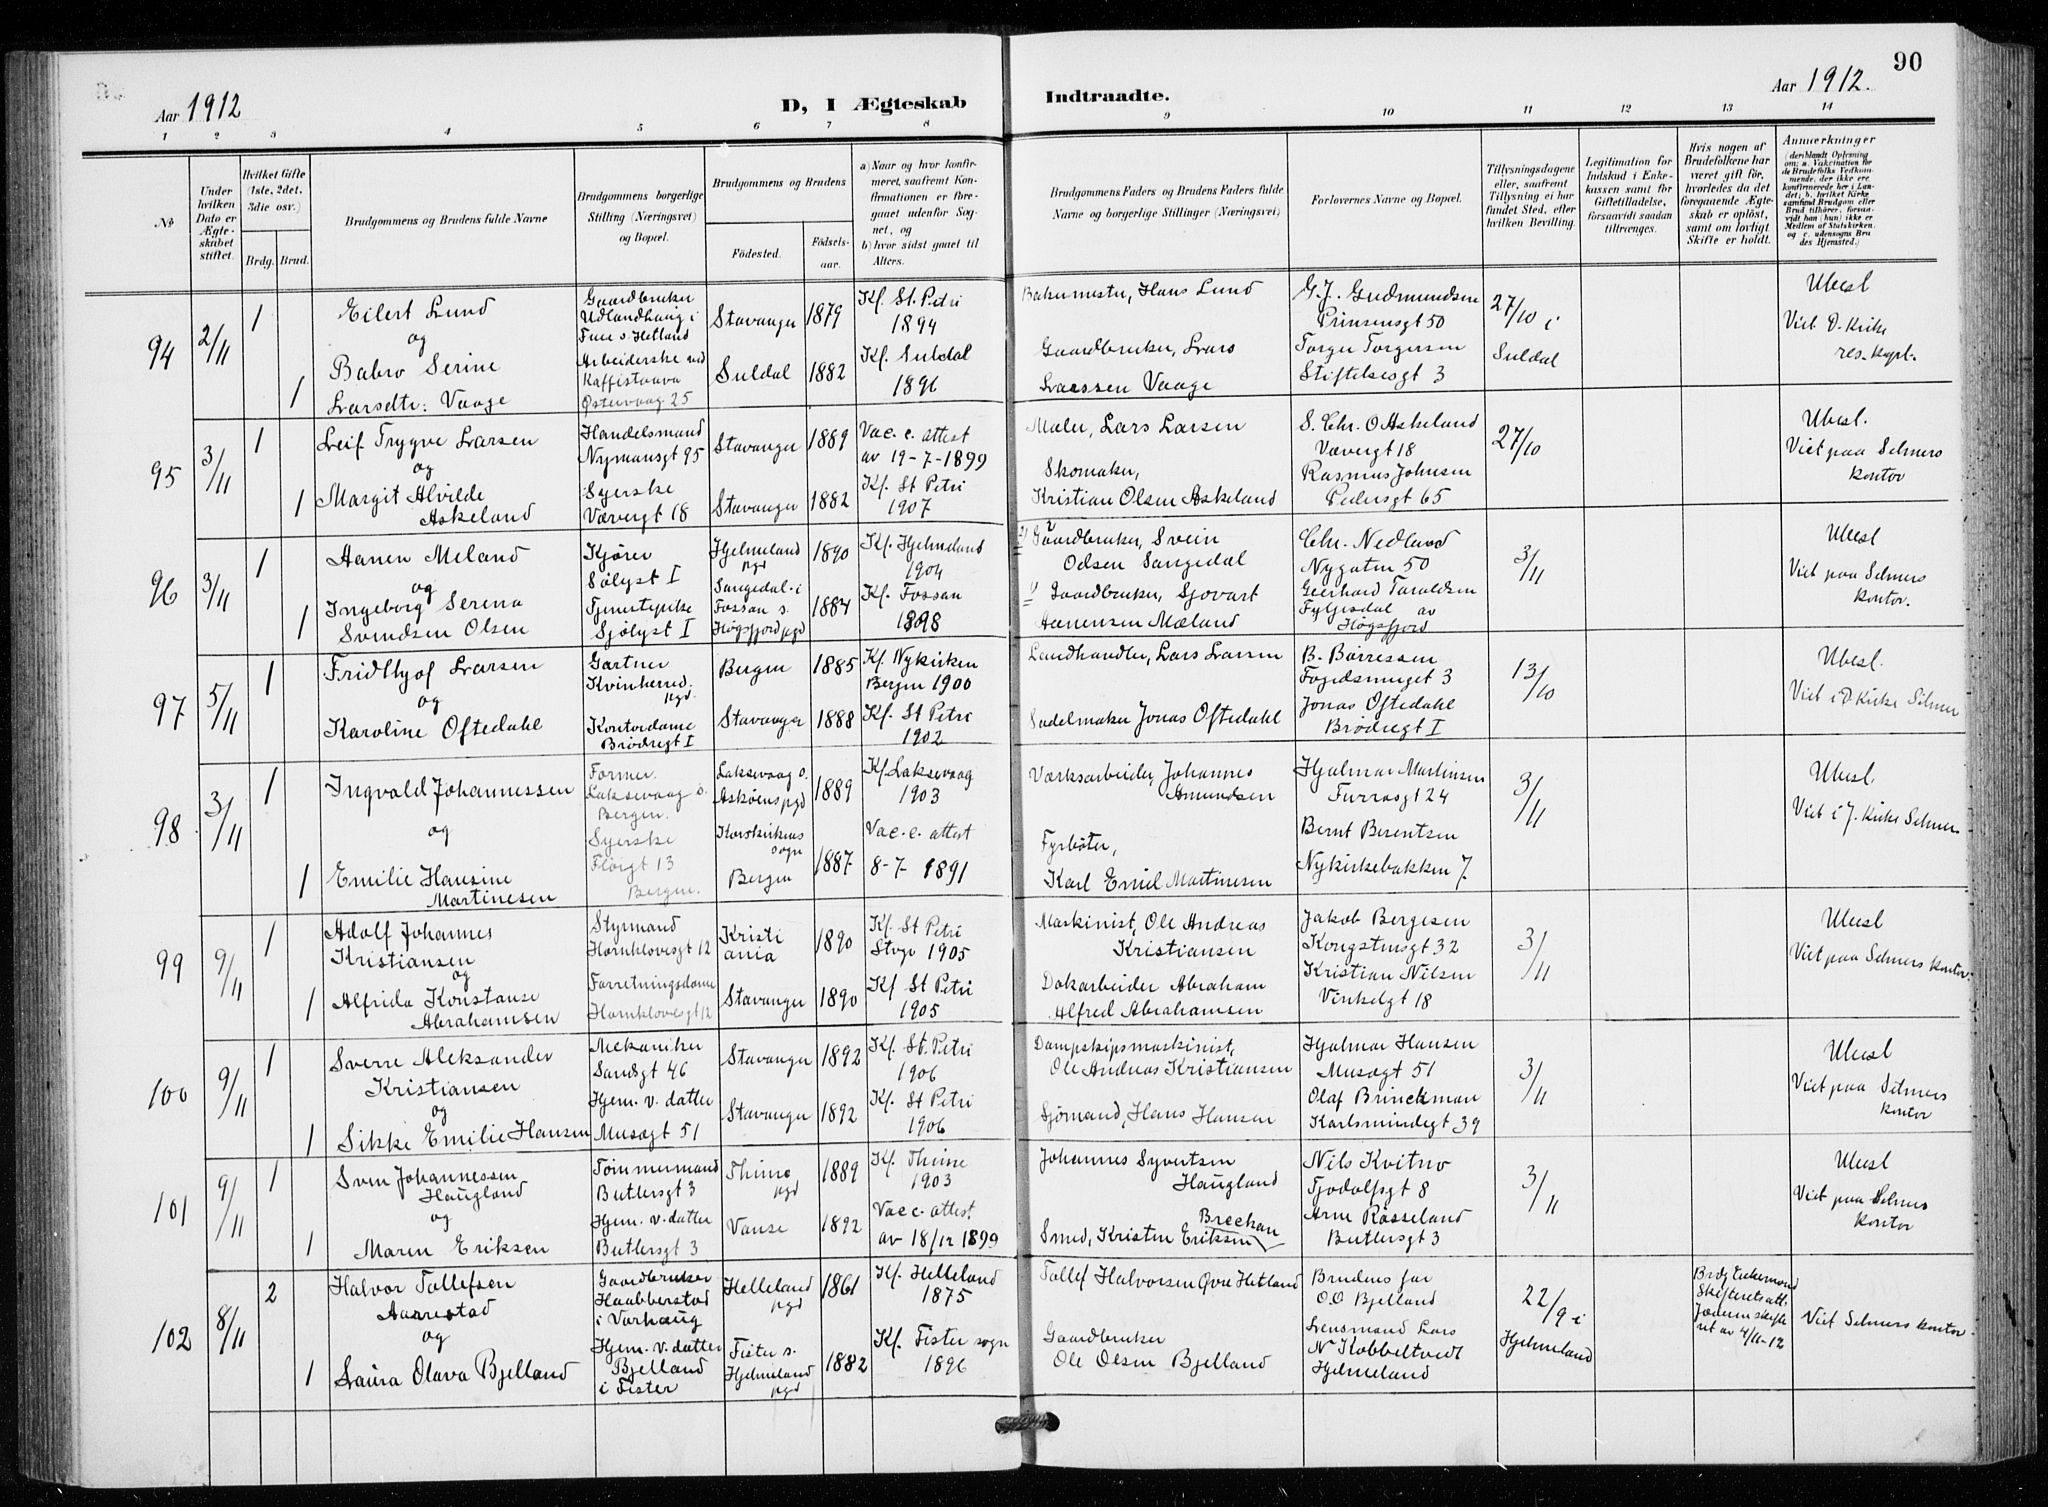 90
Aar 1912
D, I Ægteskab
Indtraadte.
Aar 1912.
1 2 3 4 5 6 7 8 9 10 11 12 13 14
No
Under hvilken Dato er Ægteskabet stiftet.
Hvilket Gifte (1ste, 2det, 3die osv.)
Brdg. Brud.
Brudgommens og Brudens fulde Navne
Brudgommens borgerlige Stilling (Næringsvei) og Bopæl.
Brudgommens og Brudens
Fødested.
Fødselsaar.
a) Naar og hvor konfirmeret, saafremt Konfirmationen er foregaaet udenfor Sognet, og
b) hvor sidst gaaet til Alters.
Brudgommens Faders og Brudens Faders fulde Navne og borgerlige Stillinger (Næringsvei)
Forlovernes Navne og Bopæl.
Tillysningsdagene eller, saafremt Tillysning ei har fundet Sted, efter hvilken Bevilling.
Legitimation for Indskud i Enkekassen samt for Giftetilladelse, forsaavidt saadan tiltrænges.
Hvis nogen af Brudefolkene har været gift før, hvorledes da det foregaaende Ægteskab er opløst, samt om lovligt Skifte er holdt.
Anmærkninger
(deriblandt Oplysning om: a. Vakcination for de Brudefolks Vedkommende, der ikke ere konfirmerede her i Landet; b. hvilket Kirkesamfund Brudgom eller Brud tilhører, forsaavidt han (hun) ikke er Medlem af Statskirken, og c. udensogns Brudes Hjemsted.)
94 2/11 1
Eilert Lund
og
1 Babro Serine
Larsdtr: Vaage
Gaardbruker
Udlandhaug i
Frue s. Hetland
Arbeiderske ved
Kaffistaava
Østervaag 25
Stavanger 1879
Suldal 1882
Kf. St. Petri
1894
Kf. Suldal
1896
Bakermester, Hans Lund
Gaardbruker, Lars
Larssen Vaage
G. J. Gudmundsen
Prinsensgt 50
Torger Torgersen
Stiftelsesgt 3
27/10 i
Suldal
Ubesl
Viet D. Kirke
res. kapl.
95 3/11 1
Leif Trygve Larsen
og
1 Margit Alvilde
Askeland
Handelsmand
Nymansgt 95
Syerske
Vævergt 18
Stavanger 1889
Stavanger 1882
Vac. c. attest
av 19-7-1899
Kf. St Petri
1907
Maler, Lars Larsen
Skomaker,
Kristian Olsen Askeland
S. Chr. O Askeland
Vævergt 18
Rasmus Johnsen
Pedersgt 65
27/10
Ubesl.
Viet paa Selmers
kontor
96 3/11 1
Aanen Meland
og
1 Ingeborg Serena
Svendsen Olsen
Kjører
Sølyst I
Tjenestepike
Sjølyst I
Hjelmeland
pgd 1890
Sangedal i
Fossan s.
Høgsfjord pgd 1884
Kf. Hjelmeland
1904
Kf. Fossan
1898
2) Gaardbruker, Svein
Odsen Sangedal
1) Gaardbruker, Sjovart
Aanensen Mæland
Chr. Nedland
Nygaten 50
Geerhard Taraldsen
Fylgjesdal av
Høgsfjord
3/11
Ubesl
Viet paa Selmers
kontor.
97 5/11 1
Fridthjof Larsen
og
Karoline Oftedahl
Gartner
Kvinherred
pgd.
Kontordame
Brødregt I
Bergen 1885
Stavanger 1888
Kf. Nykirken
Bergen 1900
Kf. St Petri
1902
Landhandler, Lars Larsen
Sadelmaker Jonas Oftedahl
B. Børressen
Fogedsmuget 3
Jonas Oftedahl
Brødregt I
13/10
Ubesl.
Viet i D Kirke Selmer
98 3/11 1
Ingvald Johannessen
og
1 Emilie Hansine
Martinesen
Former.
Laksevaag s.
Bergen.
Syerske
Fløigt 13
Bergen.
Laksevaag s.
Askøens pgd 1889
Korskirkens
sogn
Bergen 1887
Kf. Laksevaag
1903
Vac. c. attest
8-7-1891
Værksarbeider, Johannes
Amundsen
Fyrbøter,
Karl Emil Martinesen
Hjalmar Martinsen
Furrasgt 24
Bernt Berentsen
Nykirkebakken 7.
3/11
Ubesl.
Viet i J. Kirke Selmers
99 9/11 1
Adolf Johannes
Kristiansen
og
1 Alfrida Konstanse
Abrahamsen
Styrmand
Hornklovesgt 12
Forretningsdame
Hornklovesgt 12
Kristi
ania 1890
Stavanger 1890
Kf. St Petri
Stvgr 1905
Kf St Petri
1905
Maskinist, Ole Andreas
Kristiansen
Dokarbeider Abraham
Alfred Abrahamsen
Jakob Bergesen
Kongstensgt 32
Kristian Nilsen
Vinkelgt 18
3/11
Ubesl
Viet paa Selmers kontor.
100 9/11 1
Sverre Aleksander
Kristiansen
og
1 Sikke Emilie Hansen
Mekaniker
Sandsgt 46
Hjem. v. datter
Musægt 51
Stavanger 1892
Stavanger 1892
Kf. St. Petri
1906
Kf. St Petri
1906
Dampskipsmaskinist,
Ole Andreas Kristiansen
Sjømand, Hans Hansen
Hjalmar Hansen
Musægt 51
Olaf Brinckman
Karlsmindegt 39
3/11
Ubesl
Viet paa Selmers
kontor
101 9/11 1
Sven Johannessen
Haugland
og
1 Maren Eriksen
Tømmermand
Butlersgt 3
Hjem. v. datter
Butlersgt 3
Thime
pgd 1889
Vanse 1892
Kf. Thime
1903
Vac c. attest
av 18/12 1899
Johannes Syvertsen
Haugland
Brechan
Smed, Kristen Eriksen
Nils Kvitno
Tjodolfsgt 8
Arne Røsseland
Butlersgt 3
3/11
Ubesl
Viet paa Selmers
kontor
102 8/11 2
Halvor Tollefsen
Aarrestad
og
1 Laura Olava Bjelland
Gaardbruker
Haabberstad
i Varhaug
Hjem. v. datter
Bjelland
i Fister
Helleland
pgd 1861
Fister s.
Hjelmeland
pgd 1882
Kf. Helleland
1875
Kf. Fister sogn
1896
Tollef Halvorsen Øvre Hetland
Gaardbruker
Ole Olsen Bjelland
Brudens far
O.O Bjelland
Lensmand Lars
N. Kobbeltvedt
Hjelmeland
22/9 i
Hjelmeland
Brdg Enkemand
Skifteretsatt.
Jæderen skifte
ret av 4/11-12
Viet Selmers kontor